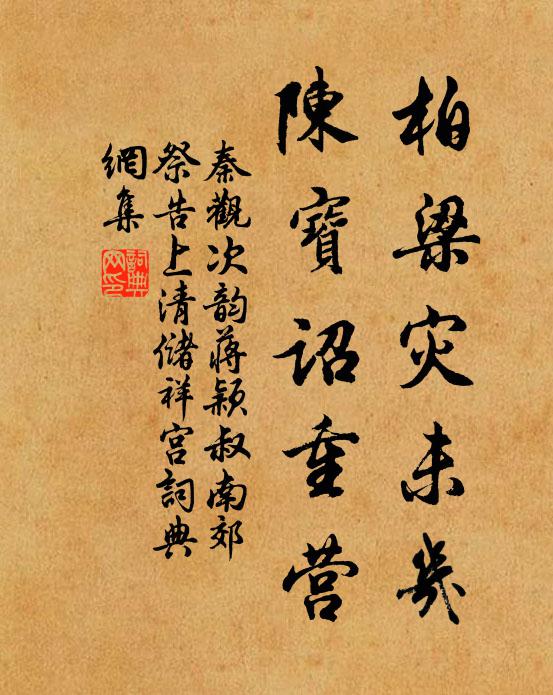 柏梁灾未几
陳寶詔重营
秦觀次韵蔣颖叔南郊
祭告上清儲祥宫詞典
網集
詞典
网印